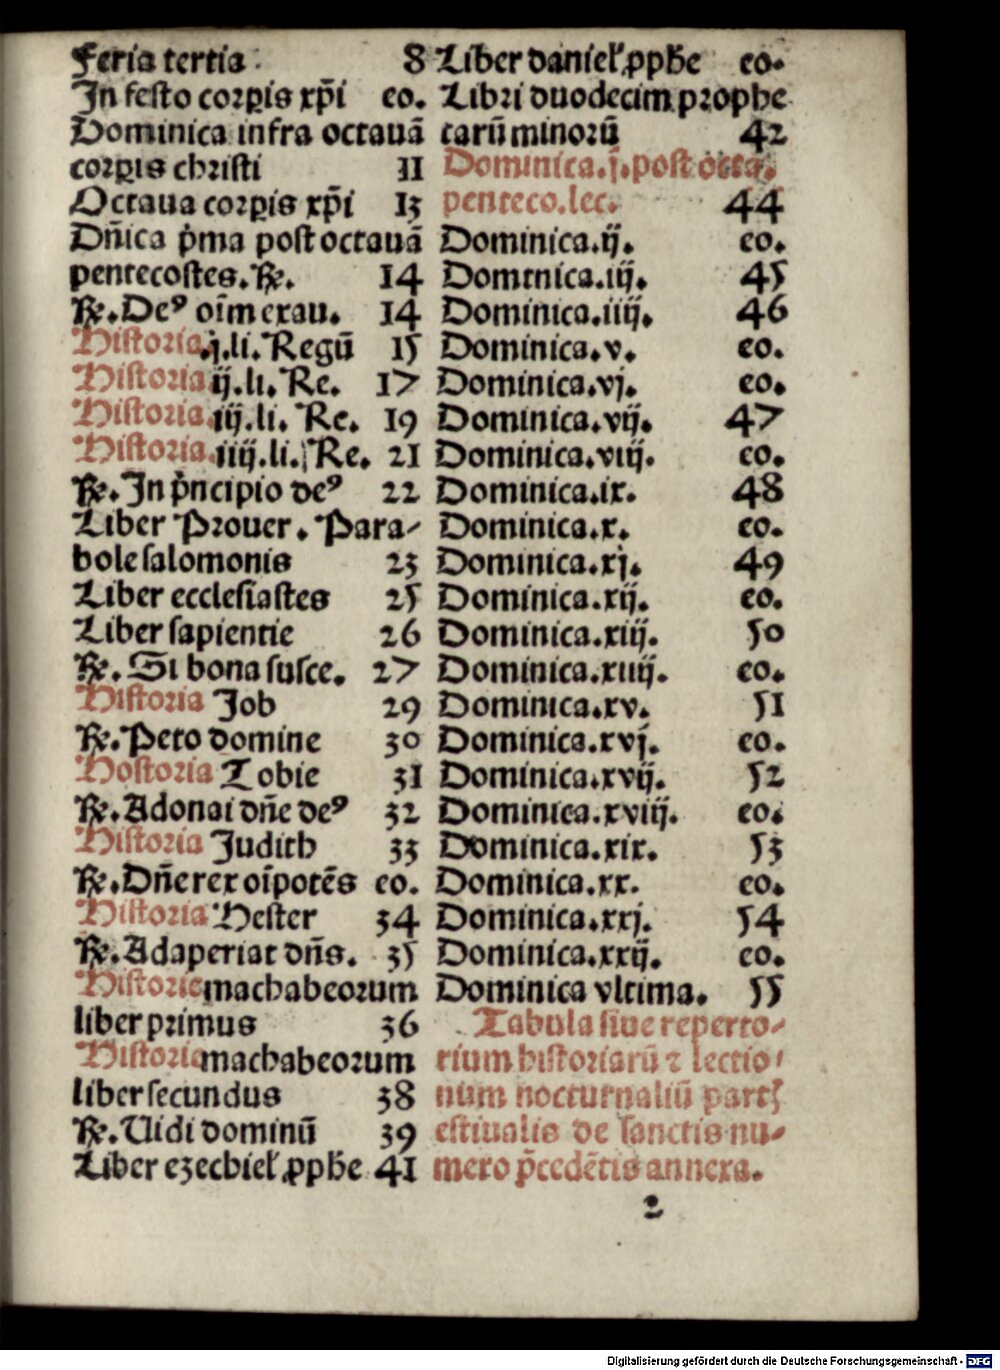 Feria tertia 8
In festo corꝑis xp̄i eo.
Dominica infra octauā
corꝑis christi 11
Octaua corꝑis xp̄i 13
Dn̄ica p̓ma post octauā
pentecostes. ℟. 14
℟. Deꝰ oīm exau. 14
Historia.j.li. Regū 15
Historia ij.li. Re. 17
Historia.iij.li. Re. 19
Historia.iiij.li. Re. 21
℟. In p̓ncipio deꝰ 22
Liber Prouer. Para-
bole salomonis 23
Liber ecclesiastes 25
Liber sapientie 26
℟. Si bona susce. 27
Historia Job 29
℟. Peto domine 30
Hostoria Tobie 31
℟. Adonai dn̄e deꝰ 32
Historia Judith 33
℟. Dn̄e rex oīpotēs eo.
Historia Hester 34
℟. Adaperiat dn̄s. 35
Historie machabeorum
liber primus 36
Historie machabeorum
liber secundus 38
℟. Uidi dominū 39
Liber ezechieł ꝓpħe 41
Liber danieł ꝓpħe eo.
Libri duodecim prophe
tarū minorū 42
Dominica.j.post octa.
penteco.lec. 44
Dominica.ij. eo.
Domtnica.iij. 45
Dominica.iiij. 46
Dominica.v. eo.
Dominica.vj. eo.
Dominica.vij. 47
Dominica.viij. eo.
Dominica.ix. 48
Dominica.x. eo.
Dominica.xj. 49
Dominica.xij. eo.
Dominica.xiij. 50
Dominica.xiiij. eo.
Dominica.xv. 51
Dominica.xvj. eo.
Dominica.xvij. 52
Dominica.xviij. eo.
Dominica.xix. 53
Dominica.xx. eo.
Dominica.xxj. 54
Dominica.xxij. eo.
Dominica vltima. 55
Tabula siue reperto-
rium historiarū ⁊ lectio-
num nocturnaliū partꝭ
estiualis de sanctis nu-
mero p̄cedētis annexa.
2
Digitalisierung gefördert durch die Deutsche Forschungsgemeinschaft - DFG